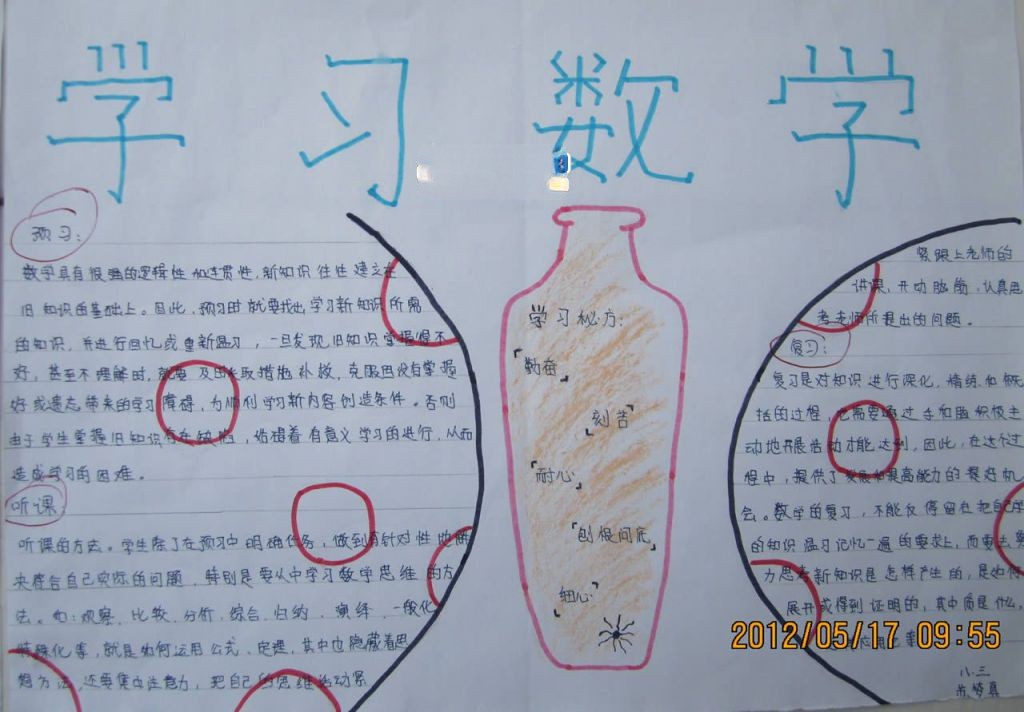 学习数学
预习:
数学具有很强的逻辑性和连贯性,新知识往往建立在
旧知识的基础上。因此,预习时就要找出学习新知识所需
的知识,并进行回忆或重新温习,一旦发现旧知识掌握得不
好,甚至不理解时,就要及时采取措施补救,克服因没有掌握
好或遗忘带来的学习障碍,为顺利学习新内容创造条件。否则
由于学生掌握旧知识存在缺陷,妨碍着有意义学习的进行,从而
造成学习的困难。
听课
听课的方法。学生除了在预习中明确任务,做到有针对性地解
决符合自己实际的问题,特别是要从中学习数学思维的方
法。如:观察、比较、分析、综合、归纳、演绎、一般化
特殊化等,就是如何运用公式、定理,其中也隐藏着思
想方法,还要集中注意力,把自己的思维活动紧
学习秘方:
「勤奋」
「刻苦」
「耐心」
「刨根问底」
「细心」
紧跟上老师的
讲课,开动脑筋,认真思
考老师所提出的问题。
复习:
复习是对知识进行深化、精练和概
括的过程,它需要通过手和脑积极主
动地开展活动才能达到,因此,在这个过
程中,提供了发展和提高能力的最好机
会。数学的复习,不能仅停留在把已学
的知识温习记忆一遍的要求上,而要去努
力思考新知识是怎样产生的,是如何
展开或得到证明的,其中质是什么,
八.三
2012/05/17 09:55